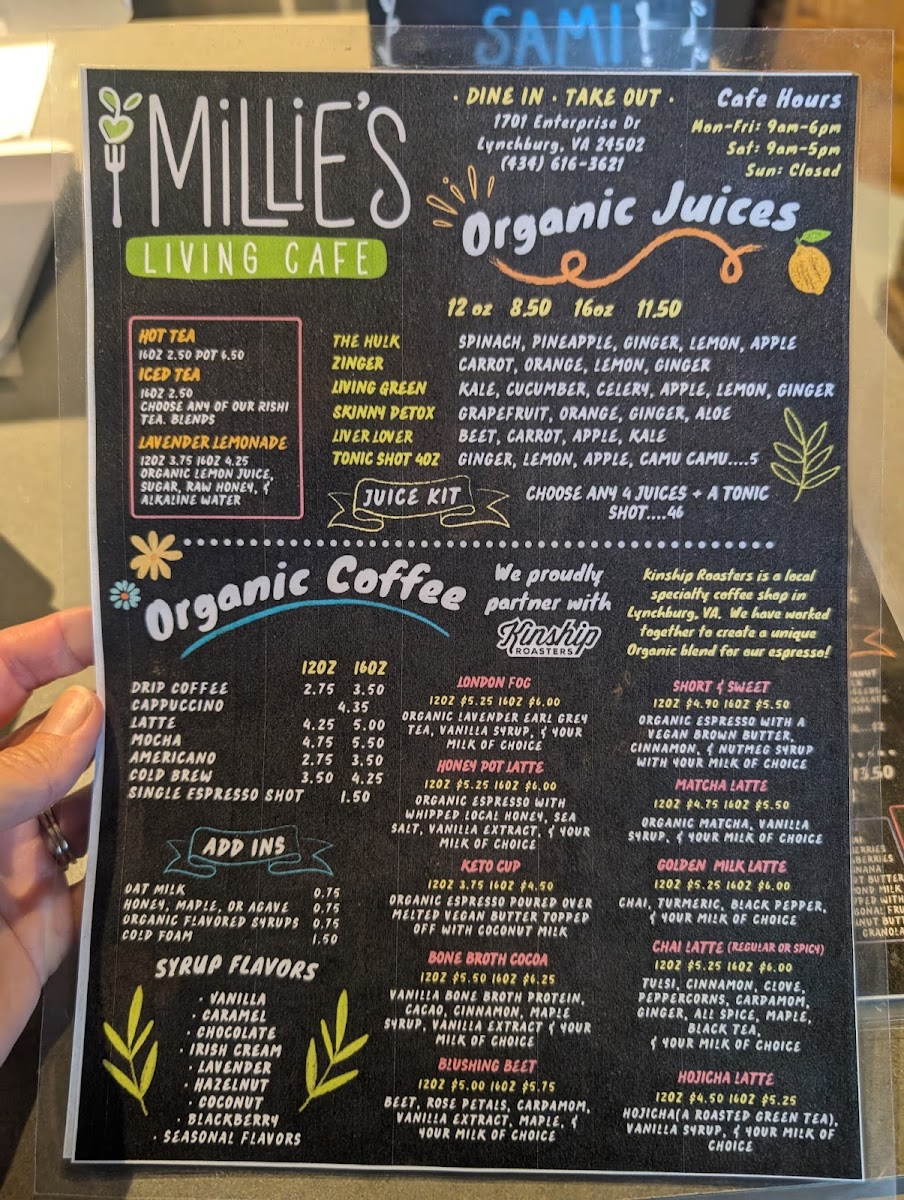 SAMI!
MiLLiE'S
LIVING CAFE
· DINE IN · TAKE OUT ·
1701 Enterprise Dr
Lynchburg, VA 24502
(434) 616-3621
Cafe Hours
Mon-Fri: 9am-6pm
Sat: 9am-5pm
Sun: Closed
Organic Juices
12 oz 8.50 16oz 11.50
HOT TEA
16OZ 2.50 POT 6.50
ICED TEA
16OZ 2.50
CHOOSE ANY OF OUR RISHI
TEA. BLENDS
LAVENDER LEMONADE
12OZ 3.75 16OZ 4.25
ORGANIC LEMON JUICE,
SUGAR, RAW HONEY, &
ALKALINE WATER
THE HULK SPINACH, PINEAPPLE, GINGER, LEMON, APPLE
ZINGER CARROT, ORANGE, LEMON, GINGER
LIVING GREEN KALE, CUCUMBER, CELERY, APPLE, LEMON, GINGER
SKINNY DETOX GRAPEFRUIT, ORANGE, GINGER, ALOE
LIVER LOVER BEET, CARROT, APPLE, KALE
TONIC SHOT 4OZ GINGER, LEMON, APPLE, CAMU CAMU....5
JUICE KIT
CHOOSE ANY 4 JUICES + A TONIC
SHOT....46
Organic Coffee
We proudly
partner with
Kinship
ROASTERS
Kinship Roasters is a local
specialty coffee shop in
Lynchburg, VA. We have worked
together to create a unique
Organic blend for our espresso!
12OZ 16OZ
DRIP COFFEE 2.75 3.50
CAPPUCCINO 4.35
LATTE 4.25 5.00
MOCHA 4.75 5.50
AMERICANO 2.75 3.50
COLD BREW 3.50 4.25
SINGLE ESPRESSO SHOT 1.50
ADD INS
OAT MILK 0.75
HONEY, MAPLE, OR AGAVE 0.75
ORGANIC FLAVORED SYRUPS 0.75
COLD FOAM 1.50
SYRUP FLAVORS
· VANILLA
· CARAMEL
· CHOCOLATE
· IRISH CREAM
· LAVENDER
· HAZELNUT
· COCONUT
· BLACKBERRY
· SEASONAL FLAVORS
LONDON FOG
12OZ $5.25 16OZ $6.00
ORGANIC LAVENDER EARL GREY
TEA, VANILLA SYRUP, & YOUR
MILK OF CHOICE
HONEY POT LATTE
12OZ $5.25 16OZ $6.00
ORGANIC ESPRESSO WITH
WHIPPED LOCAL HONEY, SEA
SALT, VANILLA EXTRACT, & YOUR
MILK OF CHOICE
KETO CUP
12OZ 3.75 16OZ $4.50
ORGANIC ESPRESSO POURED OVER
MELTED VEGAN BUTTER TOPPED
OFF WITH COCONUT MILK
BONE BROTH COCOA
12OZ $5.50 16OZ $6.25
VANILLA BONE BROTH PROTEIN,
CACAO, CINNAMON, MAPLE
SYRUP, VANILLA EXTRACT & YOUR
MILK OF CHOICE
BLUSHING BEET
12OZ $5.00 16OZ $5.75
BEET, ROSE PETALS, CARDAMOM,
VANILLA EXTRACT, MAPLE, &
YOUR MILK OF CHOICE
SHORT & SWEET
12OZ $4.90 16OZ $5.50
ORGANIC ESPRESSO WITH A
VEGAN BROWN BUTTER,
CINNAMON, & NUTMEG SYRUP
WITH YOUR MILK OF CHOICE
MATCHA LATTE
12OZ $4.75 16OZ $5.50
ORGANIC MATCHA, VANILLA
SYRUP, & YOUR MILK OF CHOICE
GOLDEN MILK LATTE
12OZ $5.25 16OZ $6.00
CHAI, TURMERIC, BLACK PEPPER,
& YOUR MILK OF CHOICE
CHAI LATTE (REGULAR OR SPICY)
12OZ $5.25 16OZ $6.00
TULSI, CINNAMON, CLOVE,
PEPPERCORNS, CARDAMOM,
GINGER, ALL SPICE, MAPLE,
BLACK TEA,
& YOUR MILK OF CHOICE
HOJICHA LATTE
12OZ $4.50 16OZ $5.25
HOJICHA(A ROASTED GREEN TEA),
VANILLA SYRUP, & YOUR MILK OF
CHOICE
13.50
BUTTER
MILK
GRANOLA